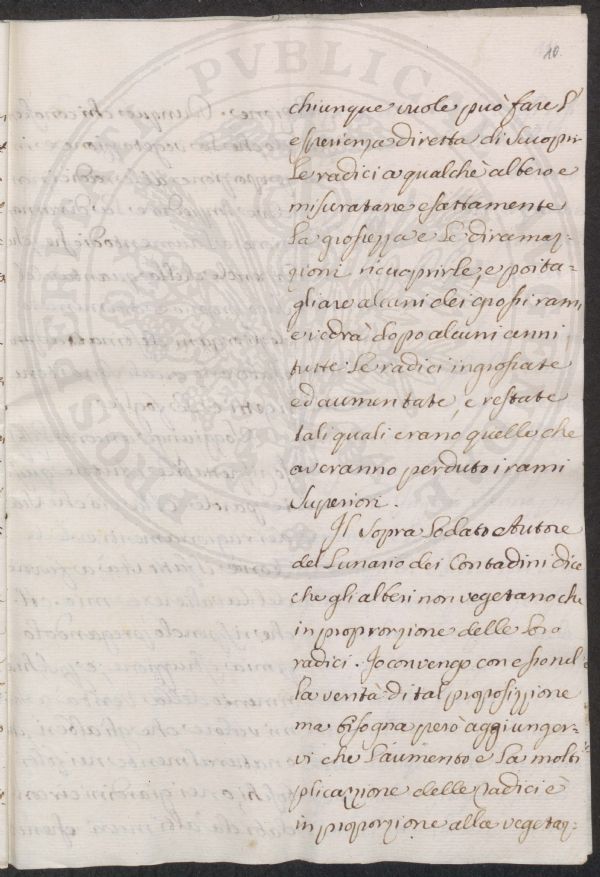 10.
chiunque vuole può fare l'
esperienza diretta di scuoprir
le radici a qualche albero e
misuratane esattamente
la grossezza e le diramaz-
zioni ricuoprirle, e poi ta-
gliare alcuni dei grossi rami,
e vedrà dopo alcuni anni
tutte le radici ingrossate
ed aumentate, e restate
tali quali erano quelle che
averanno perduto i rami
superiori.
Il sopra lodato Autore
del Lunario dei Contadini dice
che gli alberi non vegetano che
in proprorzione delle loro
radici. Io convengo con esso nel
la verità di tal proposizzione
ma bisogna però aggiunger-
vi che l'aumento e la molti
plicazzione delle radici è
in proporzione alla vegetaz-